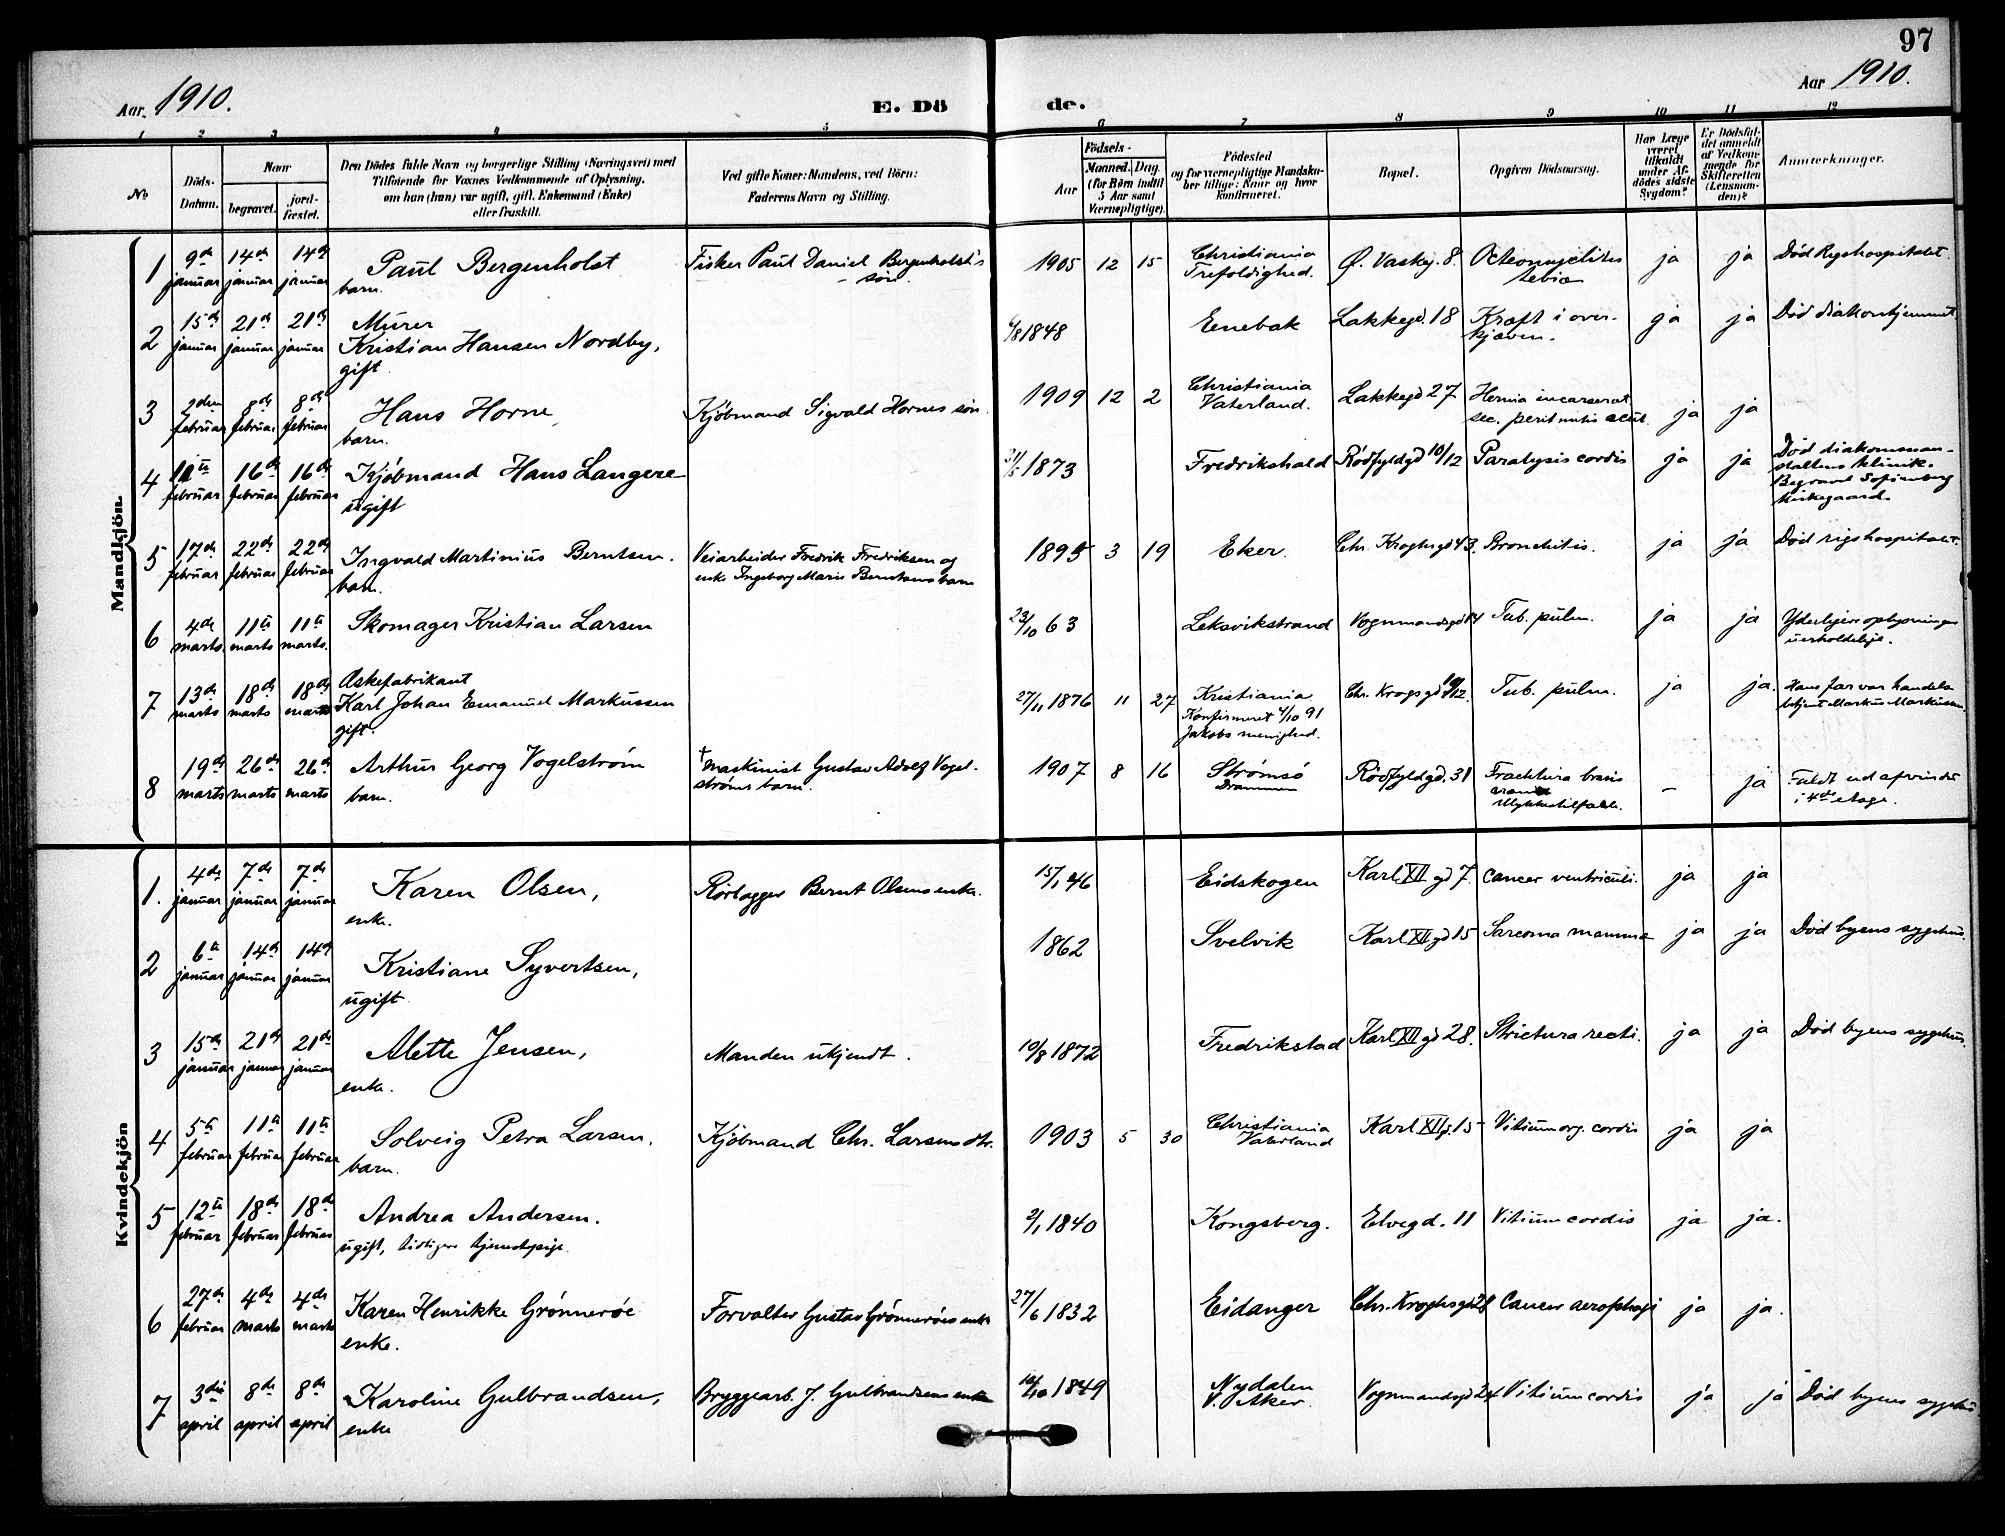 97
Aar 1910.
E. Dö de.
Aar 1910.
1 2 3 4 5 6 7 8 9 10 11 12
№
Döds-Datum.
Naar
begravet.
jord-fæstet.
Den Dödes fulde Navn og borgerlige Stilling (Næringsvei) med
Tilföiende for Voxnes Vedkommende af Oplysning,
om han (hun) var ugift, gift, Enkemand (Enke)
eller fraskilt.
Ved gifte Koner: Mandens, ved Börn:
Faderens Navn og Stilling.
Födsels-
Aar
Maaned. Dag.
(for Börn indtil
5 Aar samt
Værnepligtige).
Födested
og for værnepligtige Mandska-
ber tillige: Naar og hvor
konfirmeret.
Bopæl.
Opgiven Dödsaarsag.
Har Læge
været
tilkaldt
under Af-
dödes sidste
Sygdom?
Er Dödsfal-
det anmeldt
af Vedkom-
mende for
Skifteretten
(Lensman-
den)?
Anmærkninger.
Mandkjön
1 9de januar 14de januar 14de januar Paul Bergenholst barn. Fisker Paul Daniel Bergenholst's søn 1905 12 15 Christiania Trefoldighed. Ø. Vaskeg. 8. Octeomyelitis tebiae ja ja Død Rigshospitalet.
2 15de januar 21de januar 21de januar Murer Kristian Hansen Nordby, gift 1848 Enebak Lakkegd. 18 Kræft i over-kjæven. ja ja Død diakonhjemmet
3 2den februar 8de februar 8de februar Hans Horne, barn. Kjøbmand Sigvald Hornes søn. 1909 12 2 Christiania Vaterland. Lakkegd 27 Hernia incarserat sec. peritonitis acut. ja ja
4 februar 16de februar 16de februar Kjøbmand Hans Langere ugift 1873 Fredrikshald Rødfyldgd 10/12 Paralysis cordis ja ja Død diakonissean-staltens klinik. Begravet Sofienberg kirkegaard.
5 17de februar 22de februar 22de februar Ingvald Martinius Berntsen. barn. Veiarbeider Fredrik Fredriksen og enke Ingeborg Marie Berntsens barn 1895 3 19 Eker. Chr. Kroghsgd 43. Bronchitis. ja ja Død rigshospitalet.
6 4de marts 11te marts 11te marts. Skomager Kristian Larsen 23/10 63 Leksvikstrand Vognmandsgd 14 Tub. pulm. ja ja Yderligere oplysninger uerholdelige.
7 13de marts 18de marts 18de marts Æskefabrikant Karl Johan Emanuel Markussen gift. 27/11 1876 11 27 Kristiania Konfirmeret 4/10 91 Jakobs menighed. Chr. Krogsgd 10/12. Tub. pulm. ja ja. Hans far var handels-betjent Markus Markussen.
8 19de marts 26de marts 26de marts Arthur Georg Vogelstrøm barn. † Maskinist Gustav Adolf Vogel-strøms barn. 1907 8 16 Strømsø Drammen Rødfyldgd. 31 Fractura basis cranii Ulykkestilfælde. – ja Faldt ud af vindu i 4de etage.
Kvindekjön
1. 4de januar 7de januar 7de januar Karen Olsen, enke. Rørlægger Bernt Olsens enke. 15/1 46 Eidskogen Karl XII gd 7. Cancer ventriculi. ja ja
2 6te januar 14de januar 14de januar Kristiane Syvertsen, ugift. 1862 Svelvik Karl XII gd 15 Sarcoma mamma ja ja Død byens sygehus.
3 15de januar 21de januar 21de januar Alette Jensen, enke. Manden ukjendt. 19/8 1872 Fredrikstad Karl XII gd 28. Strictura recti. ja ja Død byens sygehus.
4 5te februar 11te februar 11te februar Solveig Petra Larsen. barn. Kjøbmand Chr. Larsens dtr. 1903 5 30 Christiania Vaterland Karl XII g. 15 Vitium org. cordis ja ja
5 12te februar 18de februar 18de februar Andrea Andersen. ugift, tidligere tjenestepige. 2/1 1840 Kongsberg. Elvegd. 11 Vitium cordis ja ja.
6 27de februar 4de marts 4de marts Karen Henrikke Grønnerøe enke. Forvalter Gustav Grønnerøes enke 27/6 1832 Eidanger Chr. Kroghsgd 28 Cancer aerophagi ja ja.
7 3die april 8de april 8de april Karoline Gulbrandsen, enke Bryggearb. J. Gulbrandsens enke 1849 Nydalen V. Aker. Vognmandsgd 24 Vitium cordis ja ja Død byens sygehus